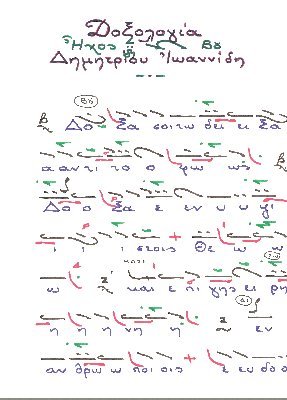 Δοξολογία
Ἦχος Βυ
Δημητρίου Ἰωαννίδη
Βυ
β Δο ξα σοι τω δει ξα
α αν τι το ο φω ως β
Δο ο ξα ε εν υ υ ψι
ι ι ι στοις Θε ω ω
ω και ε πι γης ει ρη
η η η νη η εν
αν θρω ω ποι οις ε ευ δο